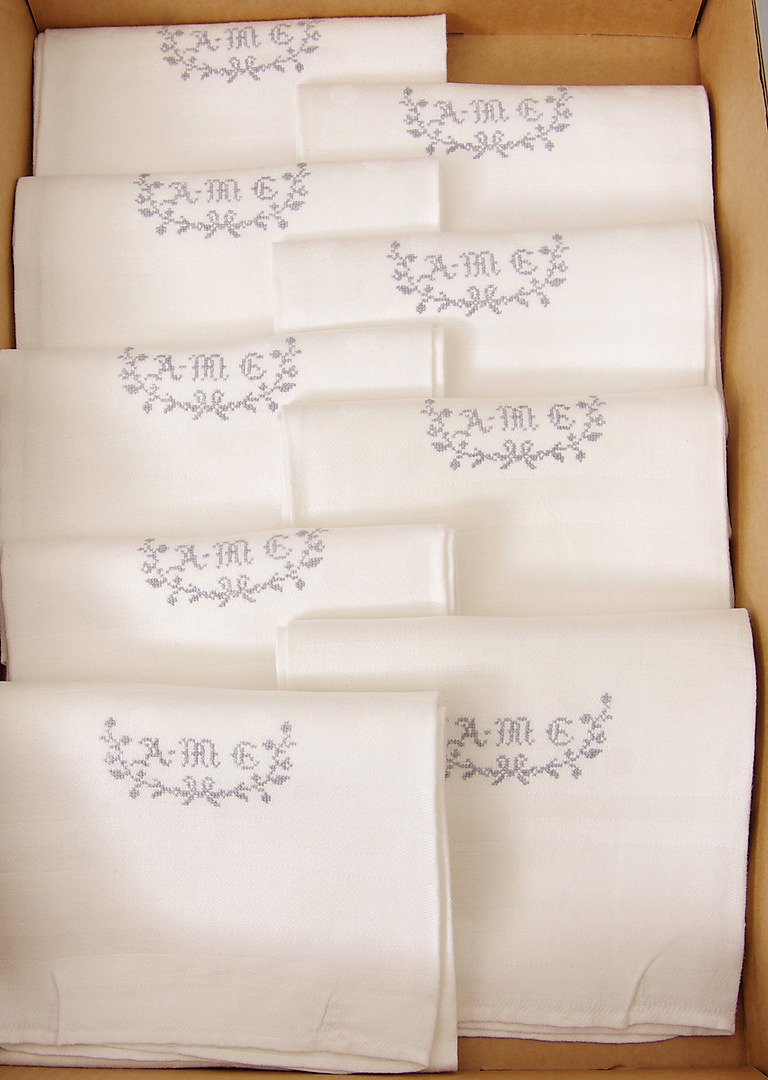 A-M E
A-M E
A-M E
A-M E
A-M E
A-M E
A-M E
A-M E
A-M E